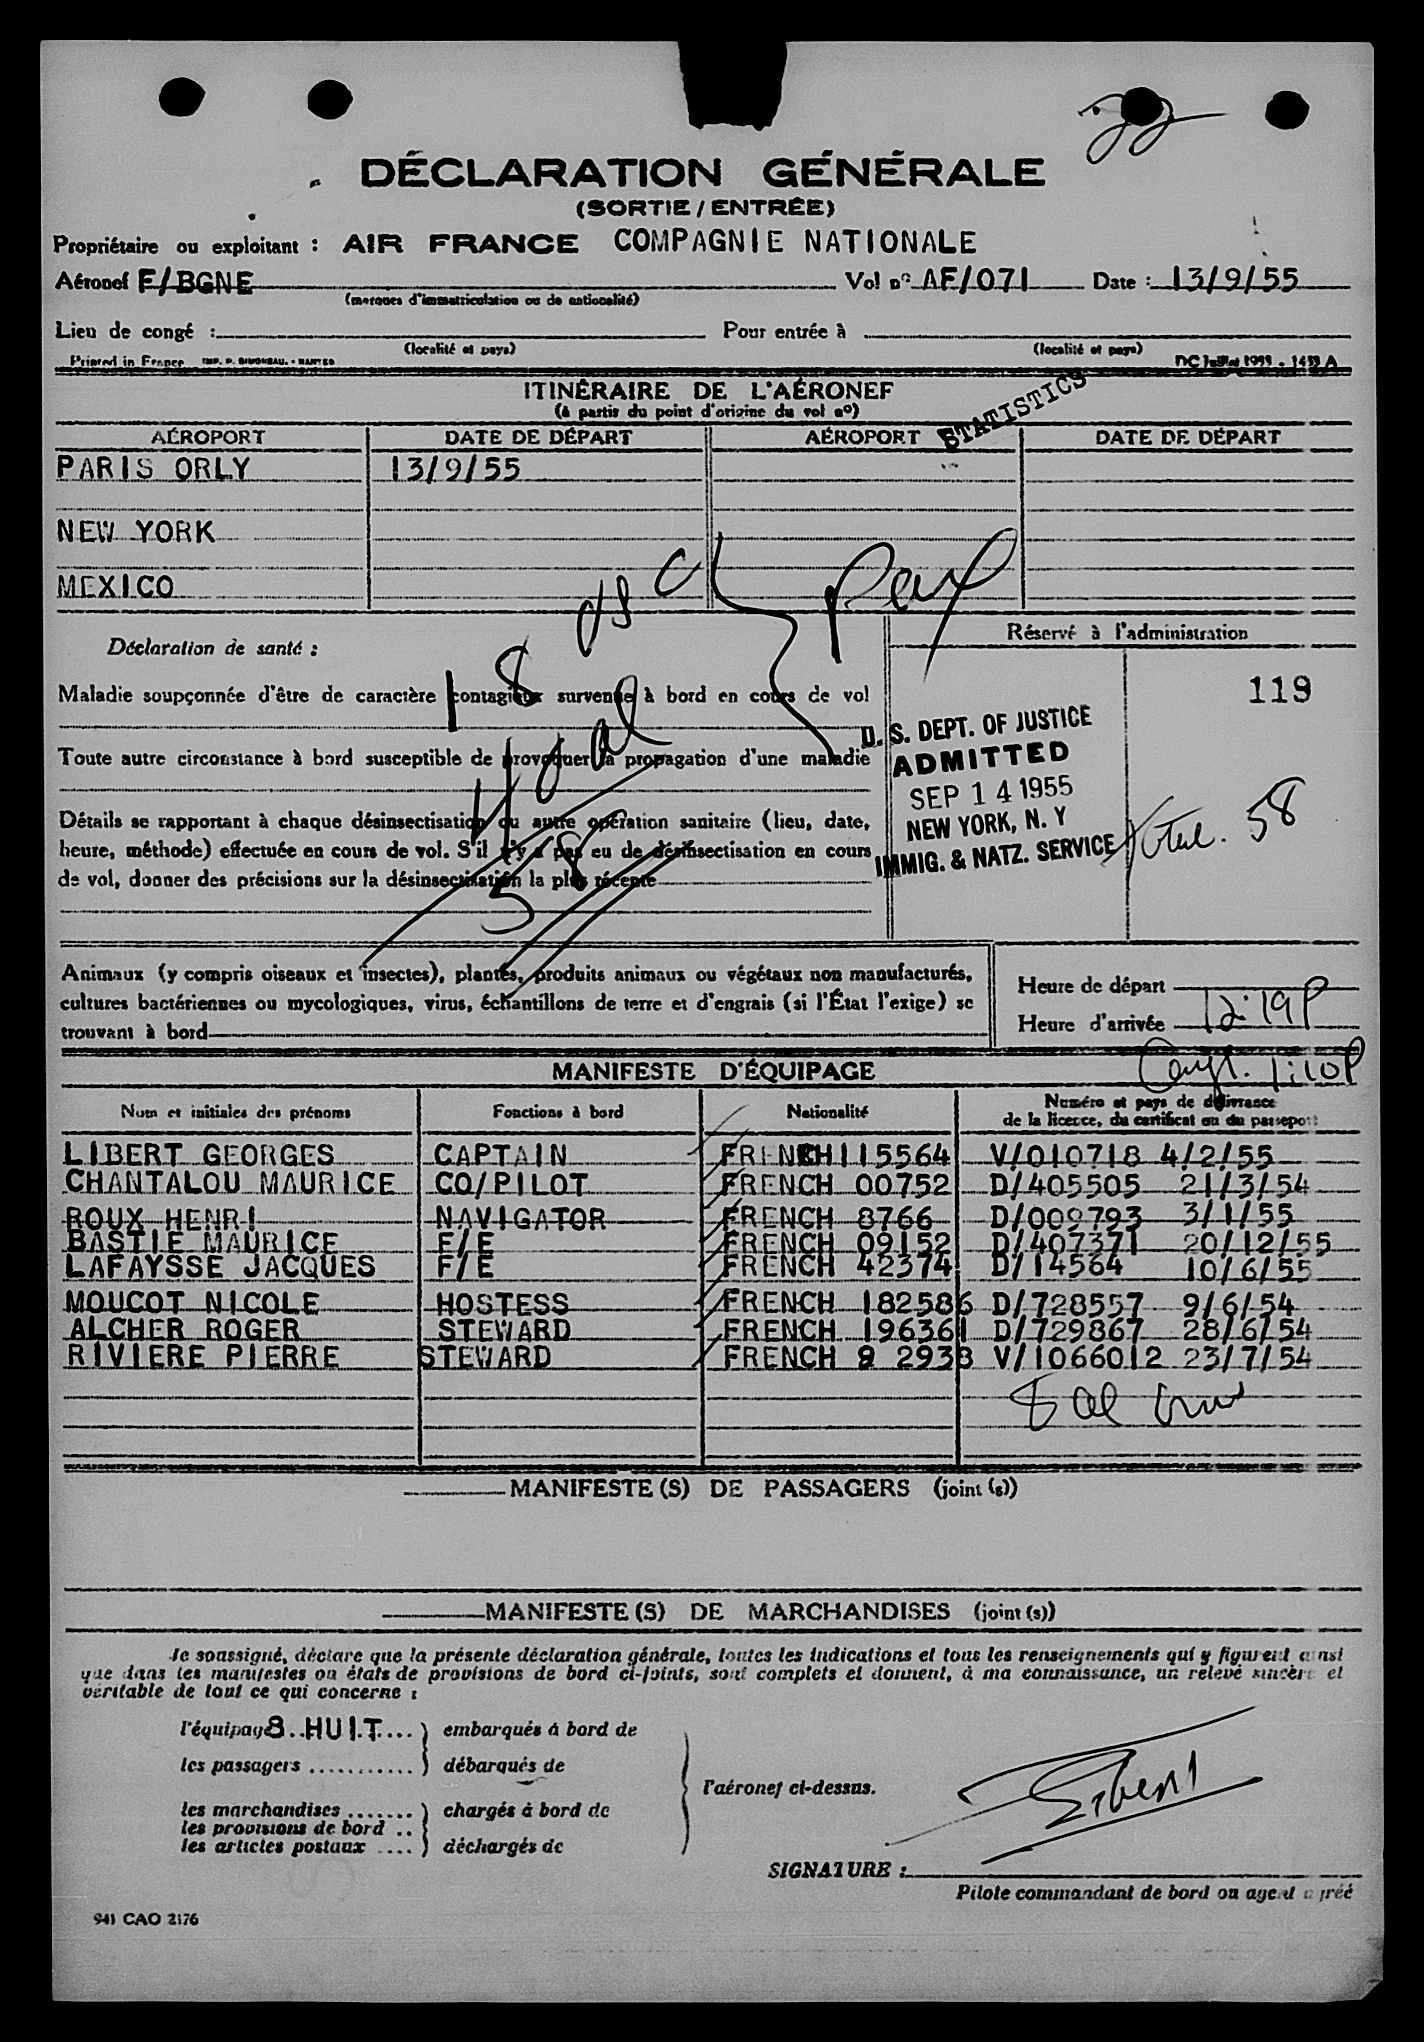 DÉCLARATION GÉNÉRALE
(SORTIE / ENTRÉE)
Propriétaire ou exploitant : AIR FRANCE COMPAGNIE NATIONALE
Aéronef F/BGNE Vol nº AF/071 Date : 13/9/55
(marques d'immatriculation ou de nationalité)
Lieu de congé : Pour entrée à
(localité et pays) (localité et pays)
Printed in France IMP. P. SIMONEAU. - NANTES DC Juillet 1953 - 1453 A
ITINÉRAIRE DE L'AÉRONEF
(à partir du point d'origine du vol nº)
STATISTICS
AÉROPORT DATE DE DÉPART AÉROPORT DATE DE DÉPART
PARIS ORLY 13/9/55
NEW YORK
MEXICO
Déclaration de santé :
Réservé à l'administration
Maladie soupçonnée d'être de caractère contagieux survenue à bord en cours de vol
119
Toute autre circonstance à bord susceptible de provoquer la propagation d'une maladie
U. S. DEPT. OF JUSTICE
ADMITTED
SEP 14 1955
NEW YORK, N. Y
IMMIG. & NATZ. SERVICE
Total. 58
18
58
Détails se rapportant à chaque désinsectisation ou autre opération sanitaire (lieu, date,
heure, méthode) effectuée en cours de vol. S'il n'y a pas eu de désinsectisation en cours
de vol, donner des précisions sur la désinsectisation la plus récente
Animaux (y compris oiseaux et insectes), plantes, produits animaux ou végétaux non manufacturés,
cultures bactériennes ou mycologiques, virus, échantillons de terre et d'engrais (si l'État l'exige) se
trouvant à bord
Heure de départ
Heure d'arrivée 12:19P
1:10P
MANIFESTE D'ÉQUIPAGE
Nom et initiales des prénoms Fonctions à bord Nationalité Numéro et pays de délivrance
de la licence, du certificat ou du passeport
LIBERT GEORGES CAPTAIN FRENCH 115564 V/010718 4/2/55
CHANTALOU MAURICE CO/PILOT FRENCH 00752 D/405505 21/3/54
ROUX HENRI NAVIGATOR FRENCH 8766 D/009793 3/1/55
BASTIE MAURICE F/E FRENCH 09152 D/407371 20/12/55
LAFAYSSE JACQUES F/E FRENCH 42374 D/14564 10/6/55
MOUCOT NICOLE HOSTESS FRENCH 182586 D/728557 9/6/54
ALCHER ROGER STEWARD FRENCH 196361 D/729867 28/6/54
RIVIERE PIERRE STEWARD FRENCH 8 2938 V/1066012 23/7/54
MANIFESTE (S) DE PASSAGERS (joint (s))
MANIFESTE (S) DE MARCHANDISES (joint (s))
Je soussigné, déclare que la présente déclaration générale, toutes les indications et tous les renseignements qui y figurent ainsi
que dans les manifestes ou états de provisions de bord ci-joints, sont complets et donnent, à ma connaissance, un relevé sincère et
véritable de tout ce qui concerne :
l'équipage 8 HUIT embarqués à bord de
les passagers débarqués de
l'aéronef ci-dessus.
les marchandises chargés à bord de
les provisions de bord
les articles postaux déchargés de
Libert
SIGNATURE :
Pilote commandant de bord ou agent agréé
941 CAO 2176